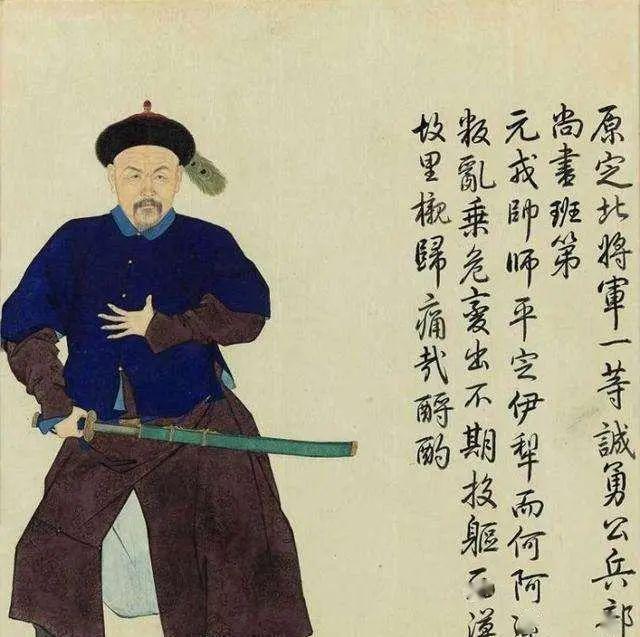 原定北將軍一等誠勇公兵部
尚書班第
元戎帥師平定伊犁而何阿
叛亂乗危變出不期投軀
故里櫬歸痛哉酹酌